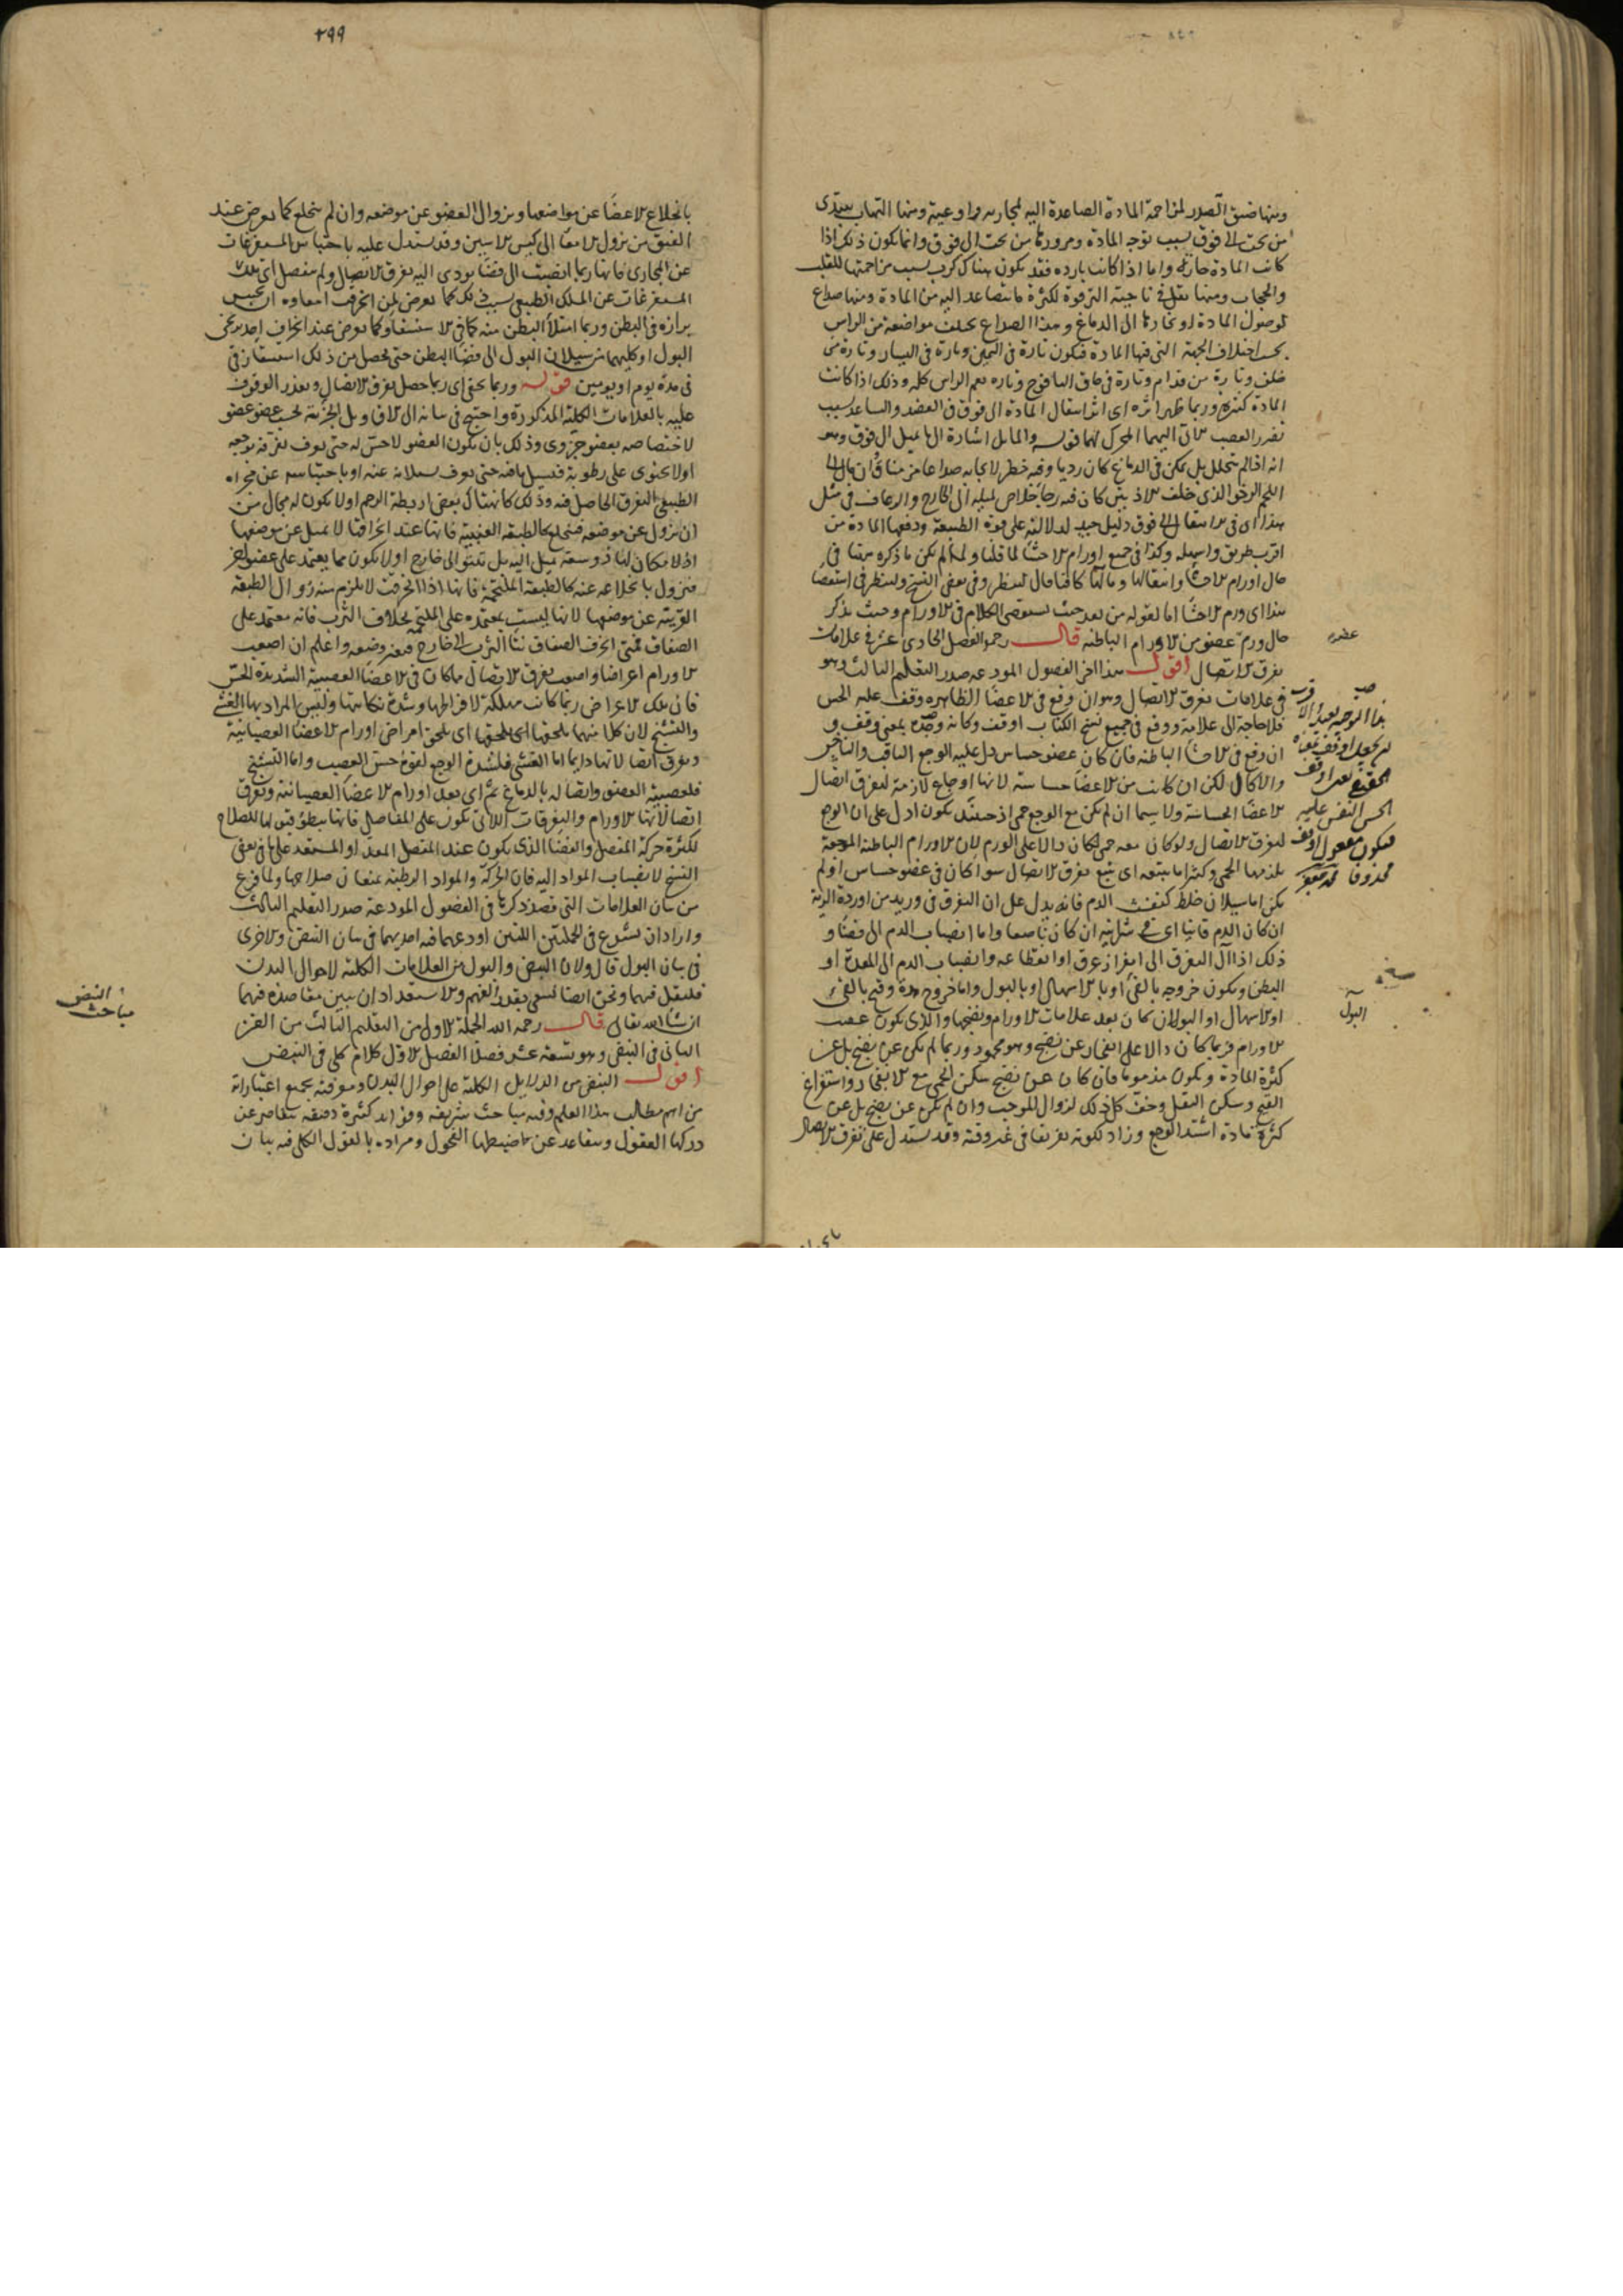 ومنها ضيق الصدر لمزاحمة المادة الصاعدة اليه لمجاريه واوعيته ومنها التهاب يبتدى
من تحت الى فوق بسبب توجه المادة ومرورها من تحت الى فوق وانما يكون ذلك اذا
كانت المادة حارة واما اذا كانت باردة فقد يكون هناك كرب بسبب مزاحمتها للقلب
والحجاب ومنها ثقل فى ناحية الترقوة لكثرة ما يتصاعد اليه من المادة ومنها صداع
لوصول المادة او بخارها الى الدماغ وهذا الصداع يختلف مواضعه من الراس
بحسب اختلاف الجهة التى فيها المادة فيكون تارة فى اليمين وتارة فى اليسار وتارة من
خلف وتارة من قدام وتارة فى حاق اليافوخ وتارة يعم الراس كله وذلك اذا كانت
المادة كثيرة وربما ظهر اثره اى اثر انتقال المادة الى فوق فى العضد والساعد بسبب
تضرر العصب الاتى اليهما المحرك لهما قوله والمايل اشارة الى المايل الى فوق وهو
انه اذا لم يتحلل بل تمكن فى الدماغ كان رديا وفيه خطر لايجابه صداعا مزمنا وان مال الى
اللحم الرخو الذى خلف الاذنين كان فيه رجا خلاص لميله الى الخارج والرعاف فى مثل
هذا اى فى الانتقال الى فوق دليل جيد لدلالته على قوة الطبيعة ودفعها المادة من
اقرب طريق واسهله وكذا فى جميع اورام الاحشا لما قلنا ولما لم يكن ما ذكره ههنا فى
حال اورام الاحشا وانتقالها ومآلها كافيا قال لينظر وفى بعض النسخ ولينظر فى استقصا
هذا اى ورم الاحشا اما لقوله من بعد حيث نستقصى الكلام فى الاورام وحيث نذكر
حال ورم عضو من الاورام الباطنة قال رحمه الفصل الحادى عشر فى علامات
تفرق الاتصال اقول هذا اخر الفصول المودعة صدر التعليم الثالث وهو
فى علامات تفرق الاتصال وهو ان وقع فى الاعضا الظاهرة وقف عليه الحس
فلا حاجة الى علامة ووقع فى جميع نسخ الكتاب اوقف وكانه وضع بمعنى وقف و
ان وقع فى الاحشا الباطنة فان كان عضو حساس دل عليه الوجع الثاقب والناخس
والاكال لكن ان كانت من الاعضا حساسة لانها اوجاع لازمة لتفرق اتصال
الاعضا الحساسة ولا سيما ان لم يكن مع الوجع حمى اذ حينئذ يكون ادل على ان الوجع
لتفرق الاتصال ولو كان معه حمى لكان دالا على الورم لان الاورام الباطنة الموجعة
يلزمها الحمى وكثيرا ما يتبعه اى يتبع تفرق الاتصال سوا كان فى عضو حساس او لم
يكن اما سيلان خلط كنفث الدم فانه يدل على ان التفرق فى وريد من اوردة الرية
ان كان الدم قانيا اى فى شرايينه ان كان ناصعا واما انصباب الدم الى فضا و
ذلك اذا آل التفرق الى انفراز عرق او انقطاعه وانصباب الدم الى المعدة او
البطن ويكون خروجه بالقئ او بالاسهال او بالبول واما خروج مدة وقيح بالقئ
او الاسهال او البول ان كان بعد علامات الاورام ونضجها والذى يكون عقيب
الاورام فربما كان دالا على انفجار عن نضج وهو محمود وربما لم يكن عن نضج بل عن
كثرة المادة ويكون مذموما فان كان عن نضج سكن الحمى مع الانفجار واستفراغ
القيح وسكن الثقل وخف كل ذلك لزوال الموجب وان لم يكن عن نضج بل عن
كثرة مادة اشتد الوجع وزاد لكونه تفريقا فى غير وقته وقد يستدل على تفرق الاتصال
عضوه
هذا التوجيه بعيد
الحس النفس عليه
فيكون مفعول اوقف
محذوفا
نسخة
البول
٢٩٩
بانخلاع الاعضا عن مواضعها وبزوال العضو عن موضعه وان لم ينخلع كما يعرض عند
الفتق من نزول الامعا الى كيس الانثيين وقد يستدل عليه باحتباس المستفرغات
عن المجارى فانها ربما انصبت الى فضا يودى اليه تفرق الاتصال ولم ينفصل اى تلك
المستفرغات عن المسلك الطبيعى بسبب ذلك كما يعرض لمن انخرقت امعاوه ان يحتبس
برازه فى البطن وربما امتلأ البطن منه كما فى الاستسقا وكما يعرض عند انخراق احد برنجى
البول او كليهما من سيلان البول الى فضا البطن حتى يحصل من ذلك استسقا زقى
فى مدة يوم او يومين قوله وربما يخفى اى ربما حصل تفرق الاتصال وتعذر الوقوف
عليه بالعلامات الكلية المذكورة واحتيج فى بيانه الى الاقاويل الجزئية بحسب عضو عضو
لاختصاصه بعضو جزوى وذلك بان يكون العضو لا حس له حتى يعرف تفرقه بوجعه
او لا يحتوى على رطوبة فيسيل ما فيه حتى يعرف بسيلانه عنه او باحتباسه عن مجراه
الطبيعى التفرق الحاصل فيه وذلك كانهتاك بعض اربطة الرحم او لا يكون له مجال من
ان يزول عن موضعه فينخلع كالطبقة العنبية فانها عند انخراقها لا تميل عن موضعها
اذ لا مكان لها ذو سعة تميل اليه بل تنتو الى خارج او لا يكون مما يعتمد على عضو اخر
فيزول بانخلاعه عنه كالطبقة الملتحمة فانها اذا انخرقت لا يلزم منه زوال الطبقة
القرنية عن موضعها لانها ليست بمعتمدة على الملتحمة بخلاف الثرب فانه معتمد على
الصفاق فمتى انخرق الصفاق نتأ الثرب الى خارج فتغير وضعه واعلم ان اصعب
الاورام اعراضا واصعب تفرق الاتصال ما كان فى الاعضا العصبية الشديدة الحس
فان تلك الاعراض ربما كانت مهلكة لافراطها وشدة نكايتها وليس المراد بها الغشى
والتشنج لان كلا منهما يلحقها اى يلحقها اى يلحق امراض اورام الاعضا العصبانية
وتفرق اتصالاتها دايما اما الغشى فلشدة الوجع لقوة حس العصب واما التشنج
فلعصبية العضو واتصاله بالدماغ ثم اى بعد اورام الاعضا العصبانية وتفرق
اتصالاتها الاورام والتفرقات اللاتى تكون على المفاصل فانها بطؤ قبولها للصلاح
لكثرة حركة المفصل والفضا الذى يكون عند المفصل المعد او المستعد على ما فى بعض
النسخ لانصباب المواد اليه فان الحركة والمواد الرطبة يمنعان صلاحها ولما فرغ
من بيان العلامات التى قصد ذكرها فى الفصول المودعة صدر التعليم الثالث
واراد ان يشرع فى الجملتين اللتين اودعهما فيه احديهما فى بيان النبض والاخرى
فى بيان البول قال ولان النبض والبول من العلامات الكلية لاحوال البدن
فلنقل فيهما ونحن ايضا نسعى بقدر الفهم والاستعداد ان نبين مقاصده فيهما
ان شا الله تعالى قال رحمه الله الجملة الاولى من التعليم الثالث من الفن
الثانى فى النبض وهو تسعة عشر فصلا الفصل الاول كلام كلى فى النبض
اقول النبض من الدلايل الكلية على احوال البدن ومعرفته بجميع اعتباراته
من اهم مطالب هذا العلم وفيه مباحث شريفة وفوايد كثيرة دقيقة يتقاصر عن
دركها العقول ويتقاعد عن ضبطها الفحول ومراده بالقول الكلى فيه بيان
النبض
مباحث